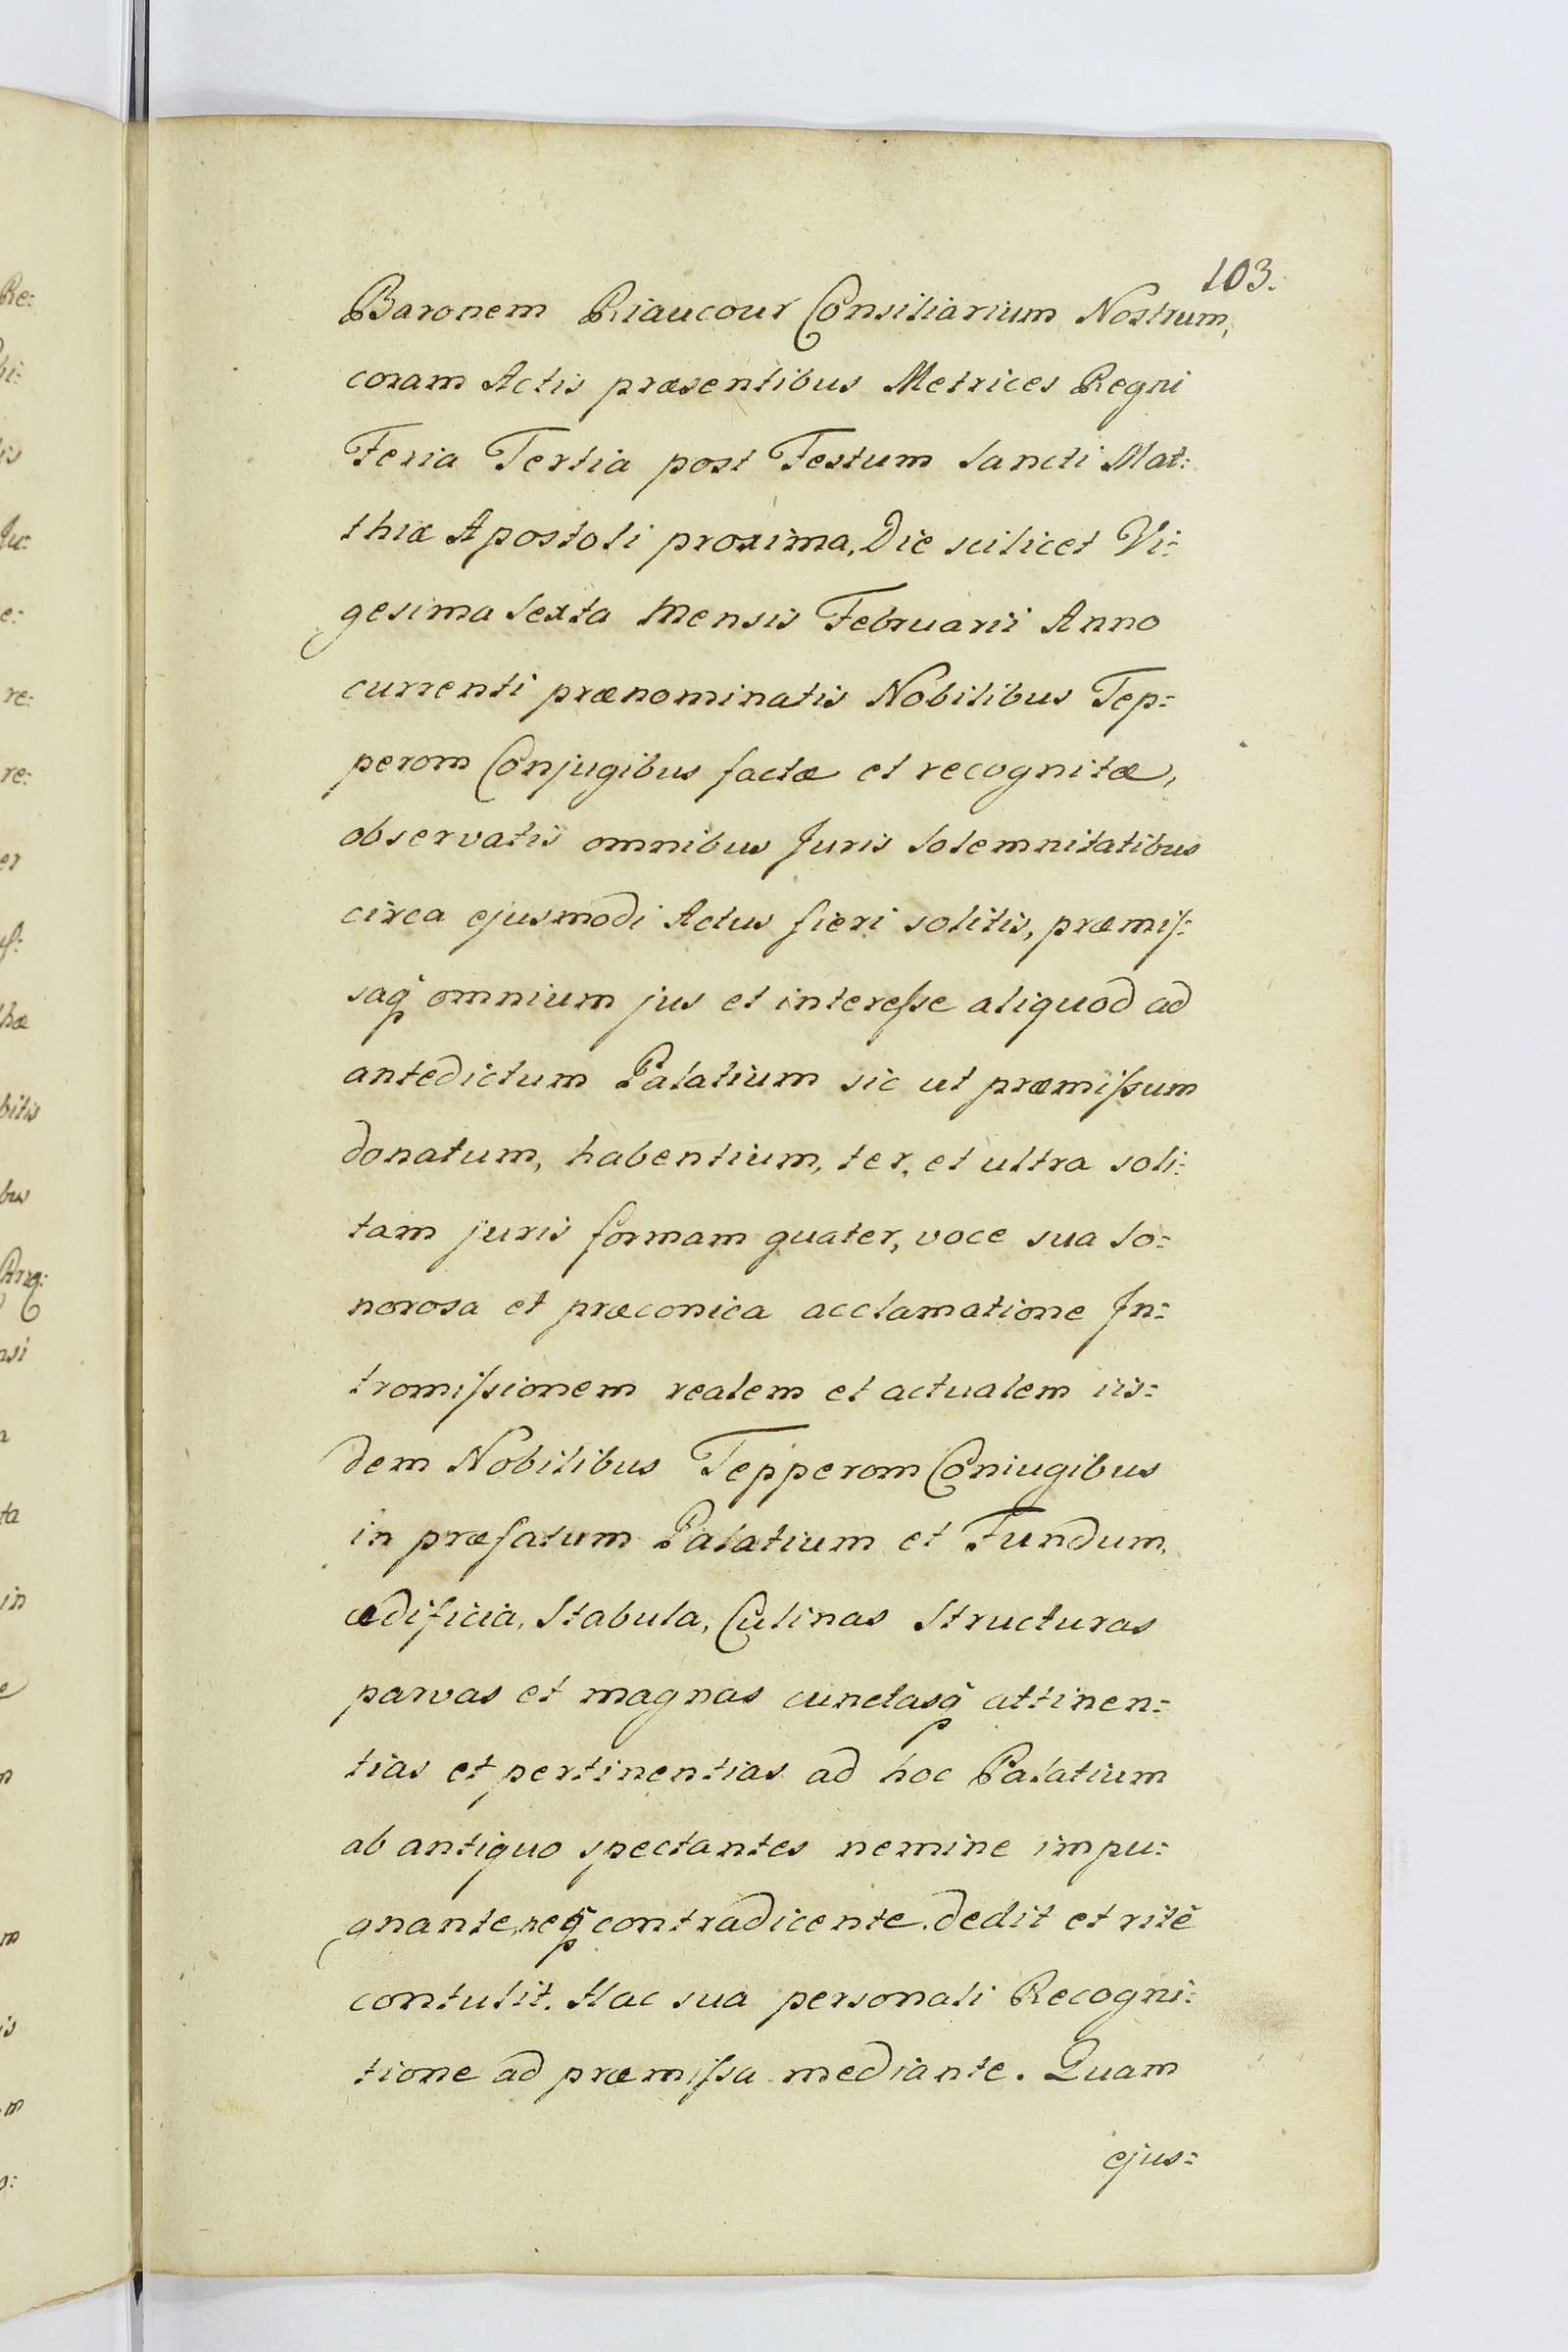 103.
Baronem Riaucour Consiliarium Nostrum,
coram Actis præsentibus Metrices Regni
Feria Tertia post Festum Sancti Mat:
thiæ Apostoli proxima, Die scilicet Vi:
gesima Sexta Mensis Februarii Anno
currenti prænominatis Nobilibus Tep:
perom Conjugibus factæ et recognitæ,
observatis omnibus Juris Solemnitatibus
circa ejusmodi Actus fieri solitis, præmiſ:
saqꝫ omnium jus et intereſse aliquod ad
antedictum Palatium sic ut præmiſsum
donatum, habentium, ter, et ultra soli:
tam juris formam quater, voce sua So:
norosa et præconica acclamatione In:
tromiſsionem realem et actualem iis:
dem Nobilibus Tepperom Coniugibus
in præfatum Palatium et Fundum,
ædificia, Stabula, Culinas Structuras
parvas et magnas cunctasqꝫ attinen:
tias et pertinentias ad hoc Palatium
ab antiquo spectantes nemine impu:
gnante, neqꝫ contradicente. dedit et ritè
contulit. Hac sua personali Recogni:
tione ad præmiſsa mediante. Quam
ejus:
Re:
hi:
is
Ju:
e:
re:
re:
er
hæ
bilis
bus
Arrq:
nsi
a
ta
in
e
n
m
is
m
o: